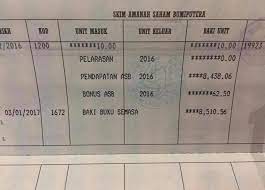 SKIM AMANAH SAHAM BUMIPUTERA
KOD UNIT MASUK UNIT KELUAR BAKI UNIT
/2016 1200 *******10.00 *******10.00 19923
PELARASAN 2016 *******0.00
PENDAPATAN ASB 2016 ****8,438.06
BONUS ASB 2016 ******62.50
03/01/2017 1672 BAKI BUKU SEMASA ****8,510.56